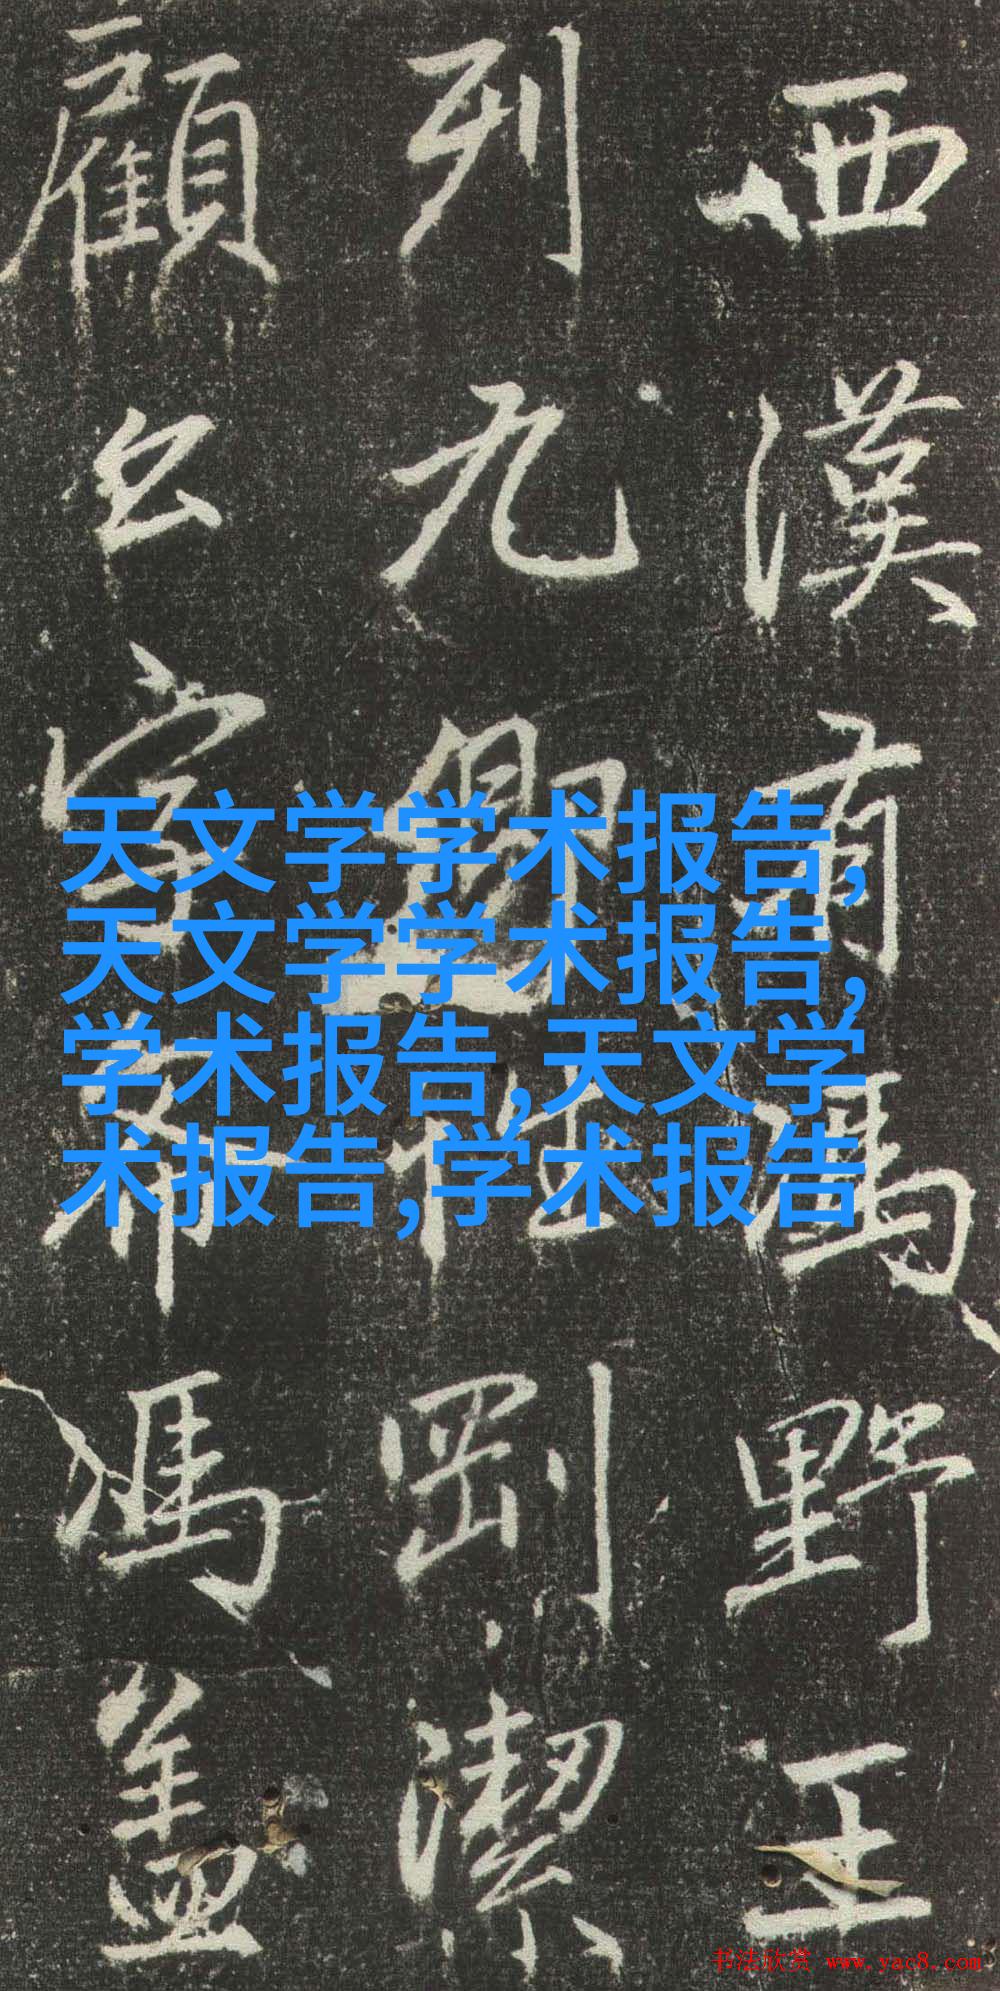 西漢有馮野王
列九卿剛潔
顧公希馮蓋
天文学学术报告,
天文学学术报告,
学术报告,天文学
术报告,学术报告
书法欣赏 www.yac8.com